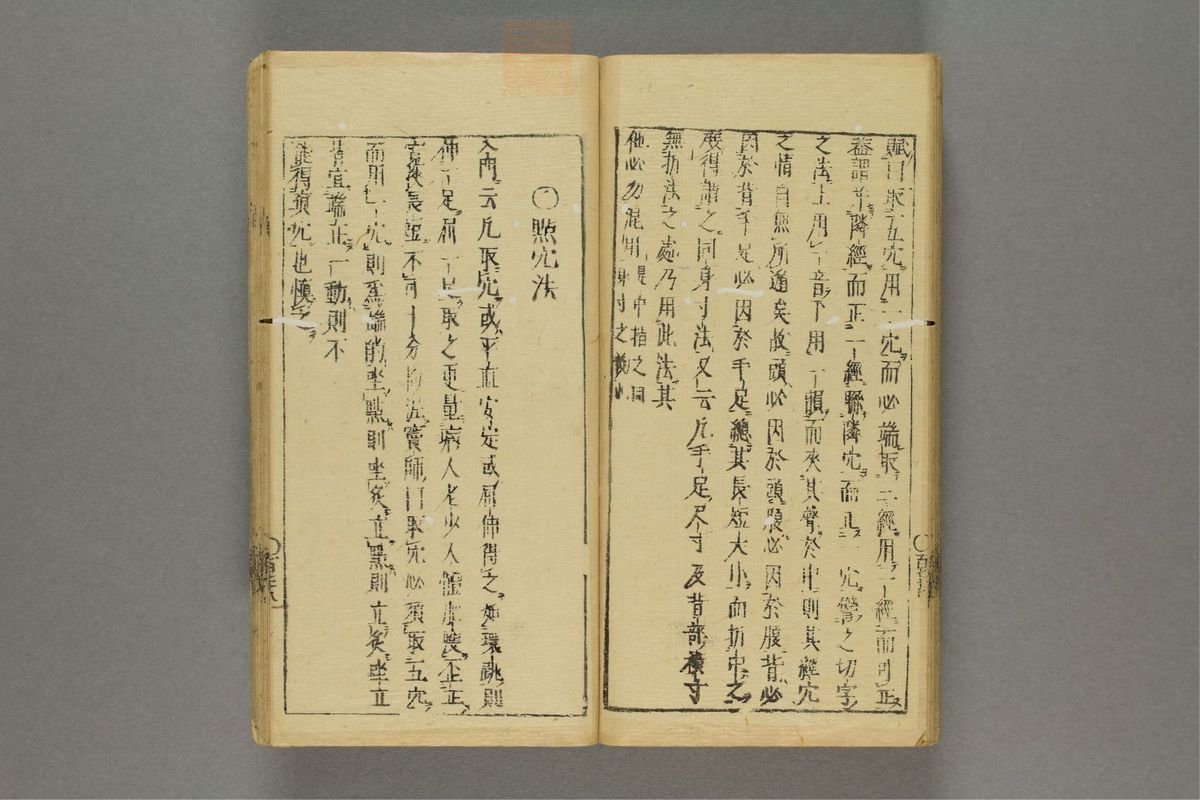 賦曰取五穴用一穴而必端取三經用一經而可正
蓋謂并隣經而正一經聯隣穴而正一穴譬之切字
之法上用一音下用一韻而夾其聲於中則其經穴
之情自無所遁矣故頭必因於頭腹必因於腹背必
因於背手足必因於手足總其長短大小而折中之
庶得謂之同身寸法又云凡手足尺寸及背部橫寸
無折法之處乃用此法其
他必勿混用是中指之同
身寸之
〇點穴法
入門云凡取穴或平直安定或屈伸得之如環跳則
伸下足屈上足取之更量病人老少人體
長短不可十分拘泥寶師曰取穴必須取五穴
而用一穴則為端的坐點則坐灸立點則立灸坐立
皆宜端正一動則不
能得真穴也慎之